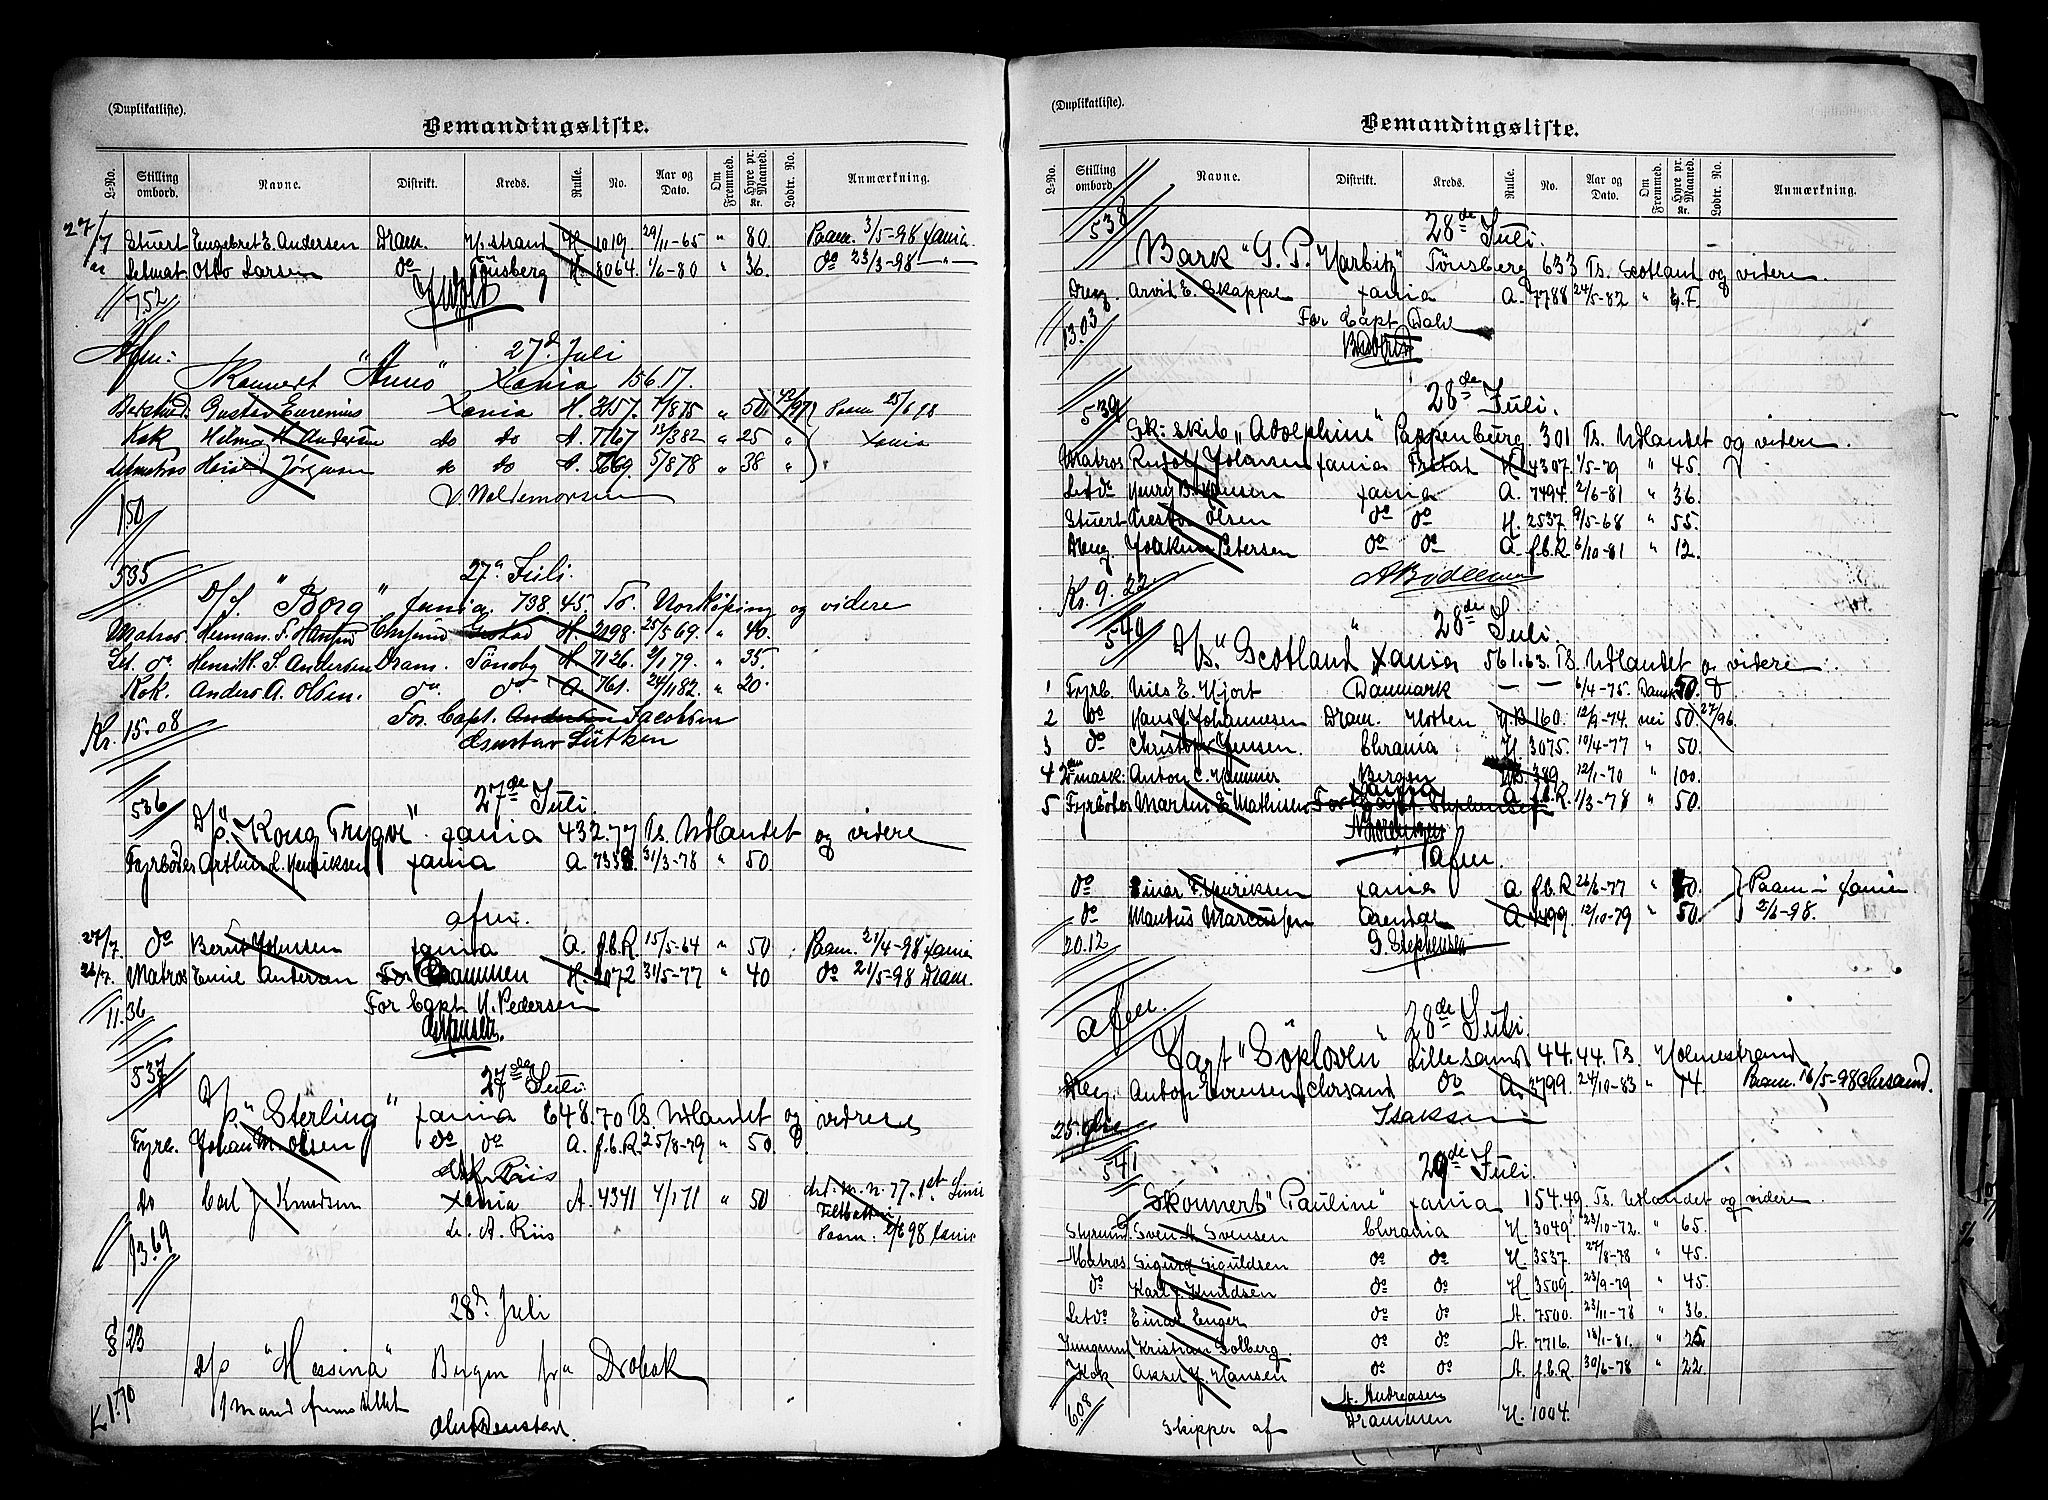 (Duplikatliste).
Bemandingsliste.
L-No. Stilling ombord. Navne. Distrikt. Kreds. Rulle. No. Aar og Dato. Om Fremmed. Hyre pr. Maaned. Kr. Lodtr. No. Anmærkning.
27/7 Stuert Engebret E. Andersen Dram. H.strand H. 1019. 29/11-65 " 80. Paam. 3/5-98 Xania
" Letmat Otto Larsen do Tönsberg H. 8064. 1/6-80 " 36. do 23/3-98 — " —
7.52
Afm:
27d Juli
Skonnert "Anno" Xania 156.17.
Gustav Eurenius Xania H. 2157. 7/8 75 " 50. 42/97 Paam 25/6 98
Kok Hilmar H. Andersen do do A. 7767 13/3 82 " 25 " Xania
Letmatros Jörgensen do do A. 5669. 5/8 78 " 38 "
Valdemarsen
1.50
535
27d Juli.
D/S. "Borg" Xania. 738.45. Ts. Norrköping og videre
Matros Herman. F. Hansen Chrsund H. 2198. 25/5 69. " 40.
Let. do Henrik. S. Andersen Dram. Tönsbg H. 7126. 2/1 79. " 35.
Kok. Anders A. Olsen. do do A. 761. 24/11 82. " 20.
For. Capt. Andersen Jacobsen
Kr. 15.08
Gustav Lütken
536
27de Juli.
D/S. "Kong Trygve" Xania 432.77 Ts. Udlandet og videre
Fyrböder Arthur L. Henriksen Xania A. 7338. 31/3-78 " 50.
afm.
27/7. do Bernt Johnsen Xania A. f.b.R. 15/5-64 " 50 Paam. 21/4-98 Xania
26/7. Matros Emil Andersen Drammen H. 2072 31/5-77 " 40 do 21/5-98 Dram.
For Capt. N. Pedersen
11.36
537
27de Juli.
D/S "Sterling" Xania 648.70 Ts. Udlandet og videre
Fyrb. Johan M. Olsen do do A. f.b.R. 25/8-79 " 50.
Riis
do Carl J. Knudsen Xania A. 4341 4/1 71 " 50
A. Riis Paam. 2/6 98 Xania
13.69
28d. Juli
23
D/S "Messina" Bergen fra Drobak
1.70
1 mand
(Duplikatliste).
Bemandingsliste.
L-No. Stilling ombord. Navne. Distrikt. Kreds. Rulle. No. Aar og Dato. Om Fremmed. Hyre pr. Maaned. Kr. Lodtr. No. Anmærkning.
538
28de Juli.
Bark "G. P. Harbitz" Tönsberg 633 Ts. Scotland og videre.
Dreng. Arvid E. Skappel Xania A. 7788 24/5-82 " E.F.
For Capt. Dahl
13.03
539
28de Juli.
Sk: skib "Adolphine" Pappenburg 301 Ts. Udlandet og videre.
Matros Rudolf Johansen Xania Frstat H. 4307. 1/5-79 " 45.
Let do Henry B. Hansen Xania A. 7494. 2/6-81 " 36.
Stuert Olsen do do H. 2537. 9/5-68 " 55.
Dreng. Joakim Petersen do do A. f.b.R. 6/10-81 " 12.
Kr. 9.22.
540
28de Juli.
D/S. "Scotland" Xania 561.63. Ts. Udlandet og videre.
1 Fyrb. Nils E. Hjort Danmark — — 6/4-75. Dansk 50.
2 do Hans J. Johannesen Dram. Horten U.B. 160. 12/9-74. nei 50. 27/96.
3 do Christoffer Jensen. Chrania H. 3075. 10/4-77 " 50.
4 2den mask: Anton C. Hammer Bergen 389. 12/1-70 " 100.
5 Fyrböder Martin E. Mathisen Xania A. f.b.R. 1/3-78 " 50.
For Capt. Stephensen
afm.
do Einar F. Henriksen Xania A. f.b.R. 26/6-77 " 50. Paam i Xania
do Mandus Marcussen Arendal A. 1499. 12/10-79 " 50. 2/6-98.
20.12
G. Stephensen
afm.
28de Juli.
Jagt "Söploven" Lillesand 44.44. Ts. Holmestrand
Dreng. Anton Evensen Chrsand do A. 3799. 24/10-83 " 14. Paam. 16/5-98 Chrsand.
25. Øre
Isaksen
541
29de Juli.
Skonnert "Pauline" Xania 154.49. Ts. Udlandet og videre
Styrmd. Sven A. Svensen Chrania H. 3049. 23/10-72. " 65.
Matros Sigurd Siguldsen do do H. 3537. 27/8-78 " 45.
do Karl J. Knudsen do do H. 3509. 23/9-79 " 45.
Let do Einar Enger do do A. 7500. 23/11-78 " 36.
Jungmd Kristian Solberg. do do A. 7716. 18/1-81. " 25
Kok Aksel J. Hansen do do A. f.b.R. 30/6-78 " 22.
6.08
A. Andreasen
Skipper af Drammen H. 1004.